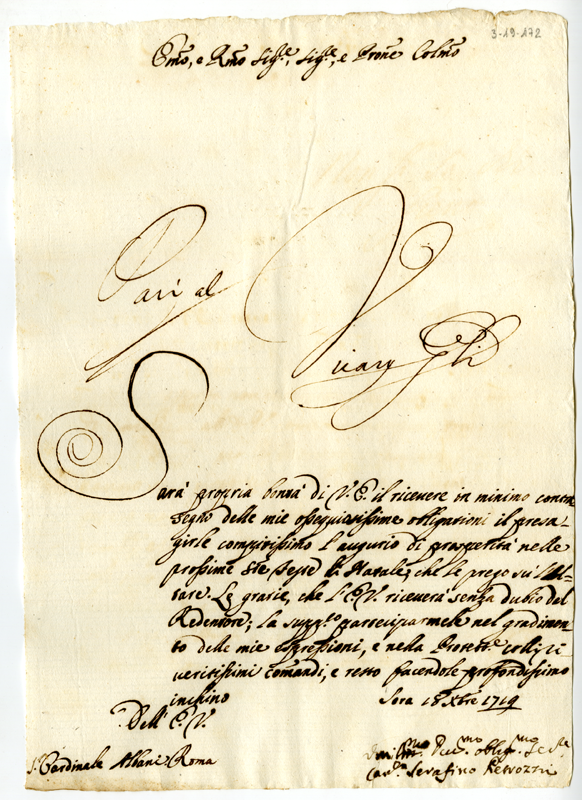 3-19-172
Emo, e Rmo Sigre, Sigre, e Prone Colmo
Pari al
Vicary Gli
Sarà propria bontà di V. E. il ricevere in minimo contra
segno delle mie ossequiosissime obligationi il presa-
girle compitissimo l'augurio di prosperità nelle
prossime Ste feste di Natale, che le prego su l'Al-
tare. Le grazie, che l'E. V. riceverà senza dubio dal
Redentore; la suppco parteciparmele nel gradimen-
to delle mie espressioni, e nella Protette
veritissimi comandi, e resto facendole profondissimo
inchino
Sora 18 Xbre 1719
Dell' E. V.
Sr Cardinale Albani Roma
Devmo obligmo
Serafino Petrozzi